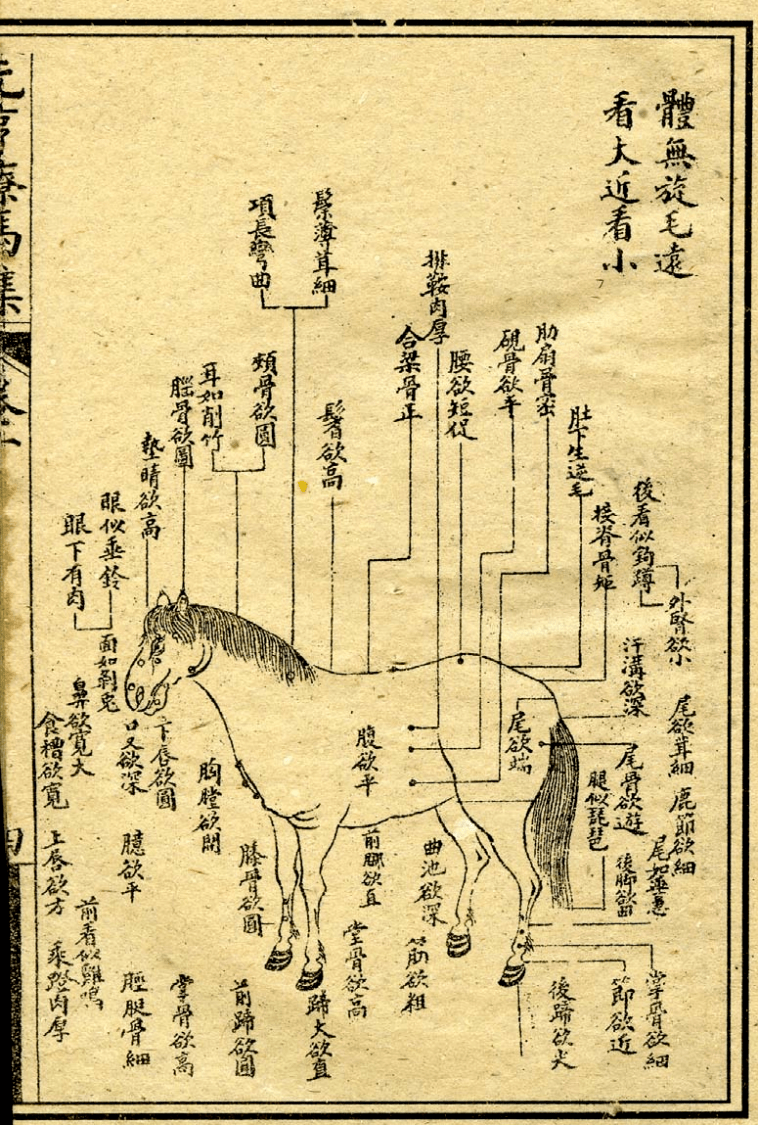 體無旋毛遠
看大近看小
後看似鈎蹲
外腎欲小
接脊骨
肚下生逆毛
肋扇骨密
硯骨欲平
腰欲短促
排鞍肉厚
合梁骨正
鬐欲高
鬃薄茸細
項長彎曲
頰骨欲圓
耳如削竹
腦骨欲圓
墊睛欲高
眼似垂鈴
眼下有肉
汗溝欲深
尾欲茸細
鹿節欲細
尾欲端
尾骨欲遊
腿似琵琶
後脚欲曲
腹欲平
面如剝兔
鼻欲寬大
食槽欲寬
口叉欲深
下唇欲圓
胸膛欲闊
曲池欲深
前脚欲直
膝骨欲圓
臆欲平
上唇欲方
掌骨欲細
節欲近
後蹄欲大
筋欲粗
堂骨欲高
蹄大欲直
前蹄欲圓
掌骨欲高
脛骨細
前看似雞鳴
乘鐙肉厚
元亨療馬集
四